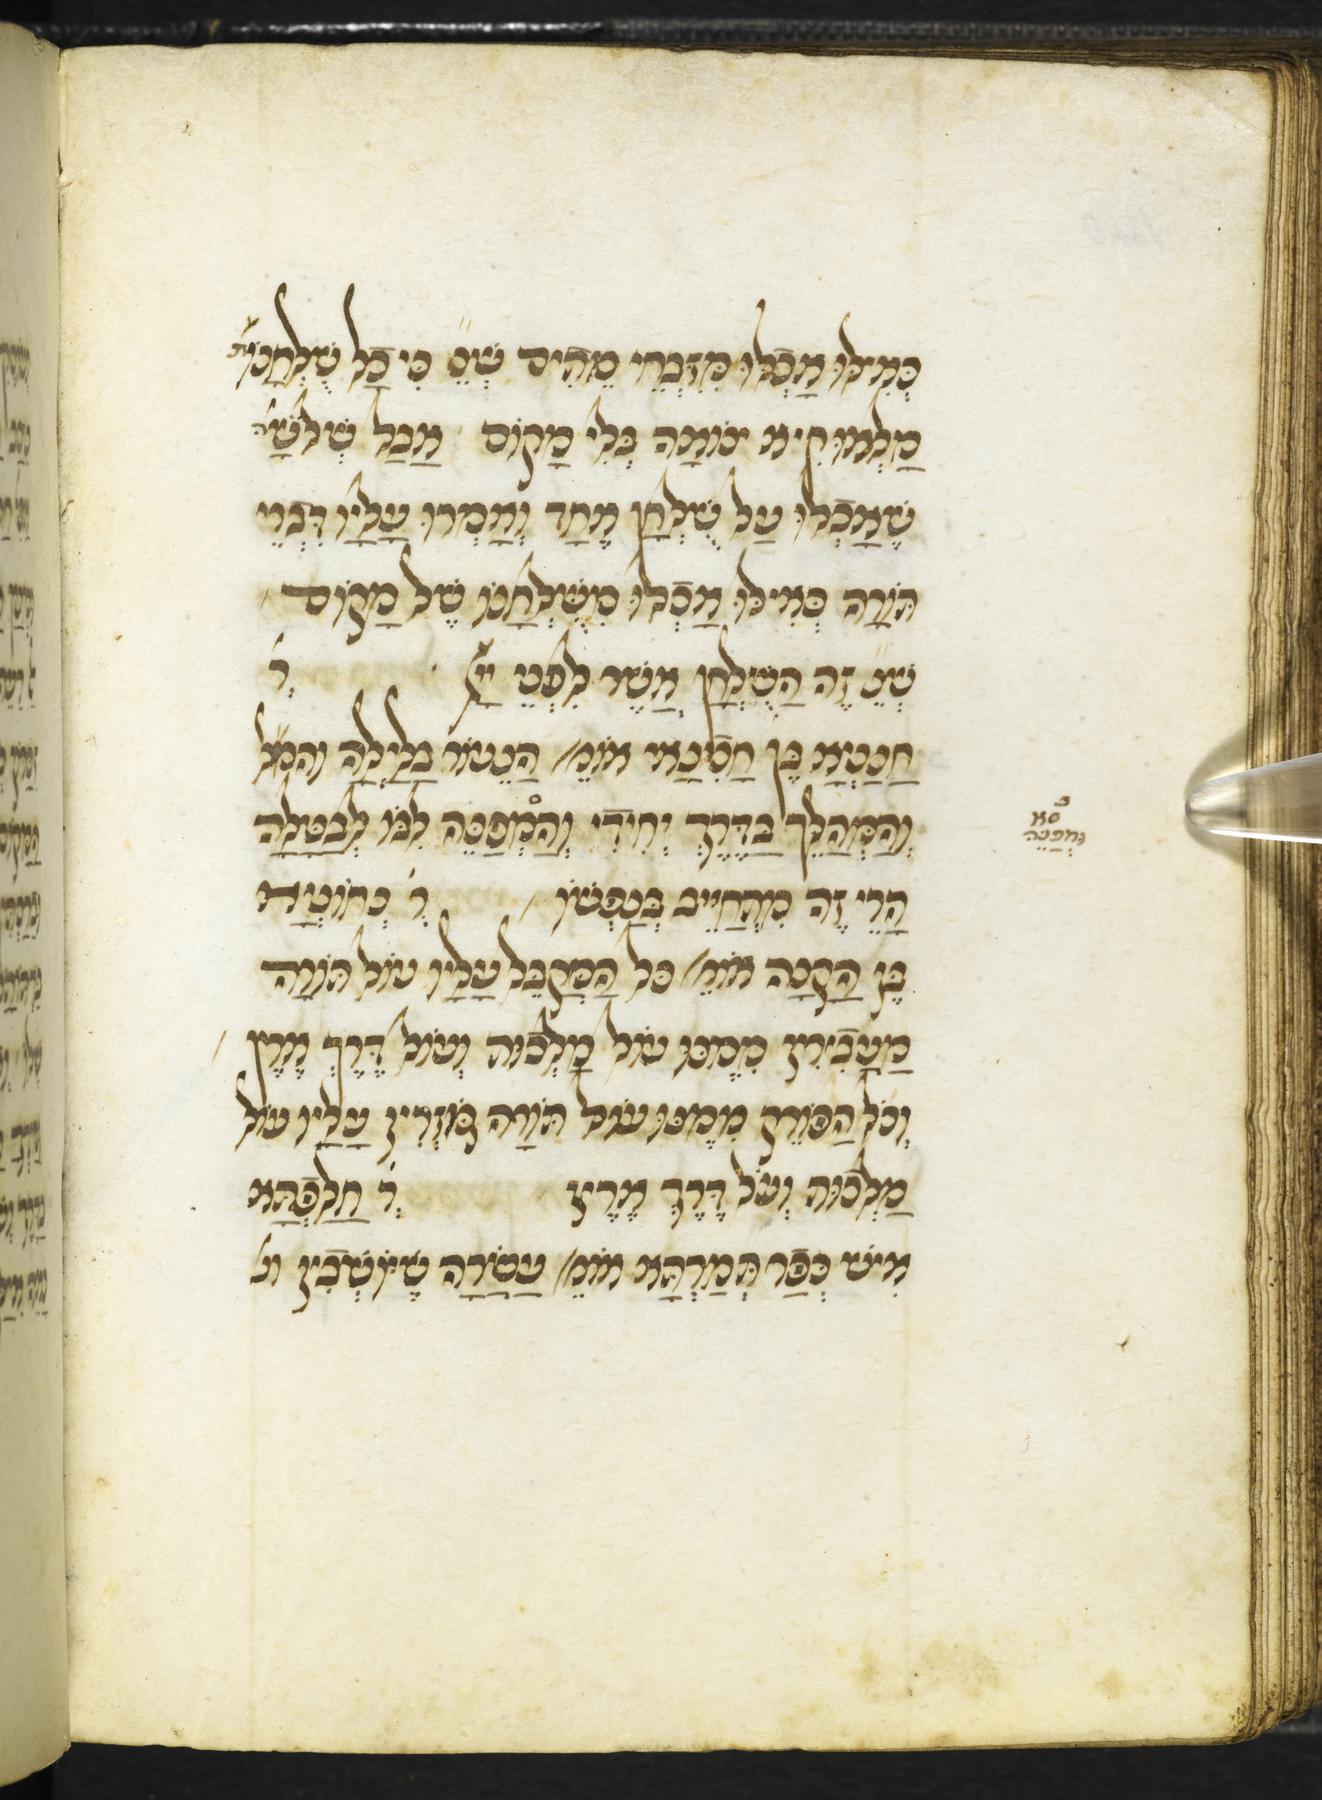 כְּאִילּוּ אָכְלוּ מִזִּבְחֵי מֵתִים שְׁנֶ״ כִּי כָּל שֻׁלְחָנוֹת
מָלְאוּ קִיא צוֹאָה בְּלִי מָקוֹם אֲבָל שְׁלֹשָׁה
שֶׁאָכְלוּ עַל שֻׁלְחָן אֶחָד וְאָמְרוּ עָלָיו דִּבְרֵי
תוֹרָה כְּאִילּוּ אָכְלוּ מִשֻּׁלְחָנוֹ שֶׁל מָקוֹם
שְׁנֶ״ זֶה הַשֻּׁלְחָן אֲשֶׁר לִפְנֵי יְיָ ר׳
חֲנַנְיָא בֶּן חֲכִינַאי אוֹמֵ׳ הַנֵּעוֹר בַּלַּיְלָה וְהַמְ
וְהַמְּהַלֵּךְ בַּדֶּרֶךְ יְחִידִי וְהַמְפַנֶּה לִבּוֹ לְבַטָּלָה
ס״א
וּמְפַנֶּה
הֲרֵי זֶה מִתְחַיֵּיב בְּנַפְשׁוֹ ר׳ נְחוֹנְיָא
בֶּן הַקָּנָה אוֹמֵ׳ כָּל הַמְקַבֵּל עָלָיו עוֹל תּוֹרָה
מַעֲבִירִין מִמֶּנּוּ עוֹל מַלְכוּת וְעוֹל דֶּרֶךְ אֶרֶץ
וְכֹל הַפּוֹרֵק מִמֶּנּוּ עוֹל תּוֹרָה גּוֹזְרִין עָלָיו עוֹל
מַלְכוּת וְעוֹל דֶּרֶךְ אֶרֶץ ר׳ חֲלַפְתָּא
אִישׁ כְּפַר חֲנַנְיָא אוֹמֵ׳ עֲשָׂרָה שֶׁיּוֹשְׁבִין